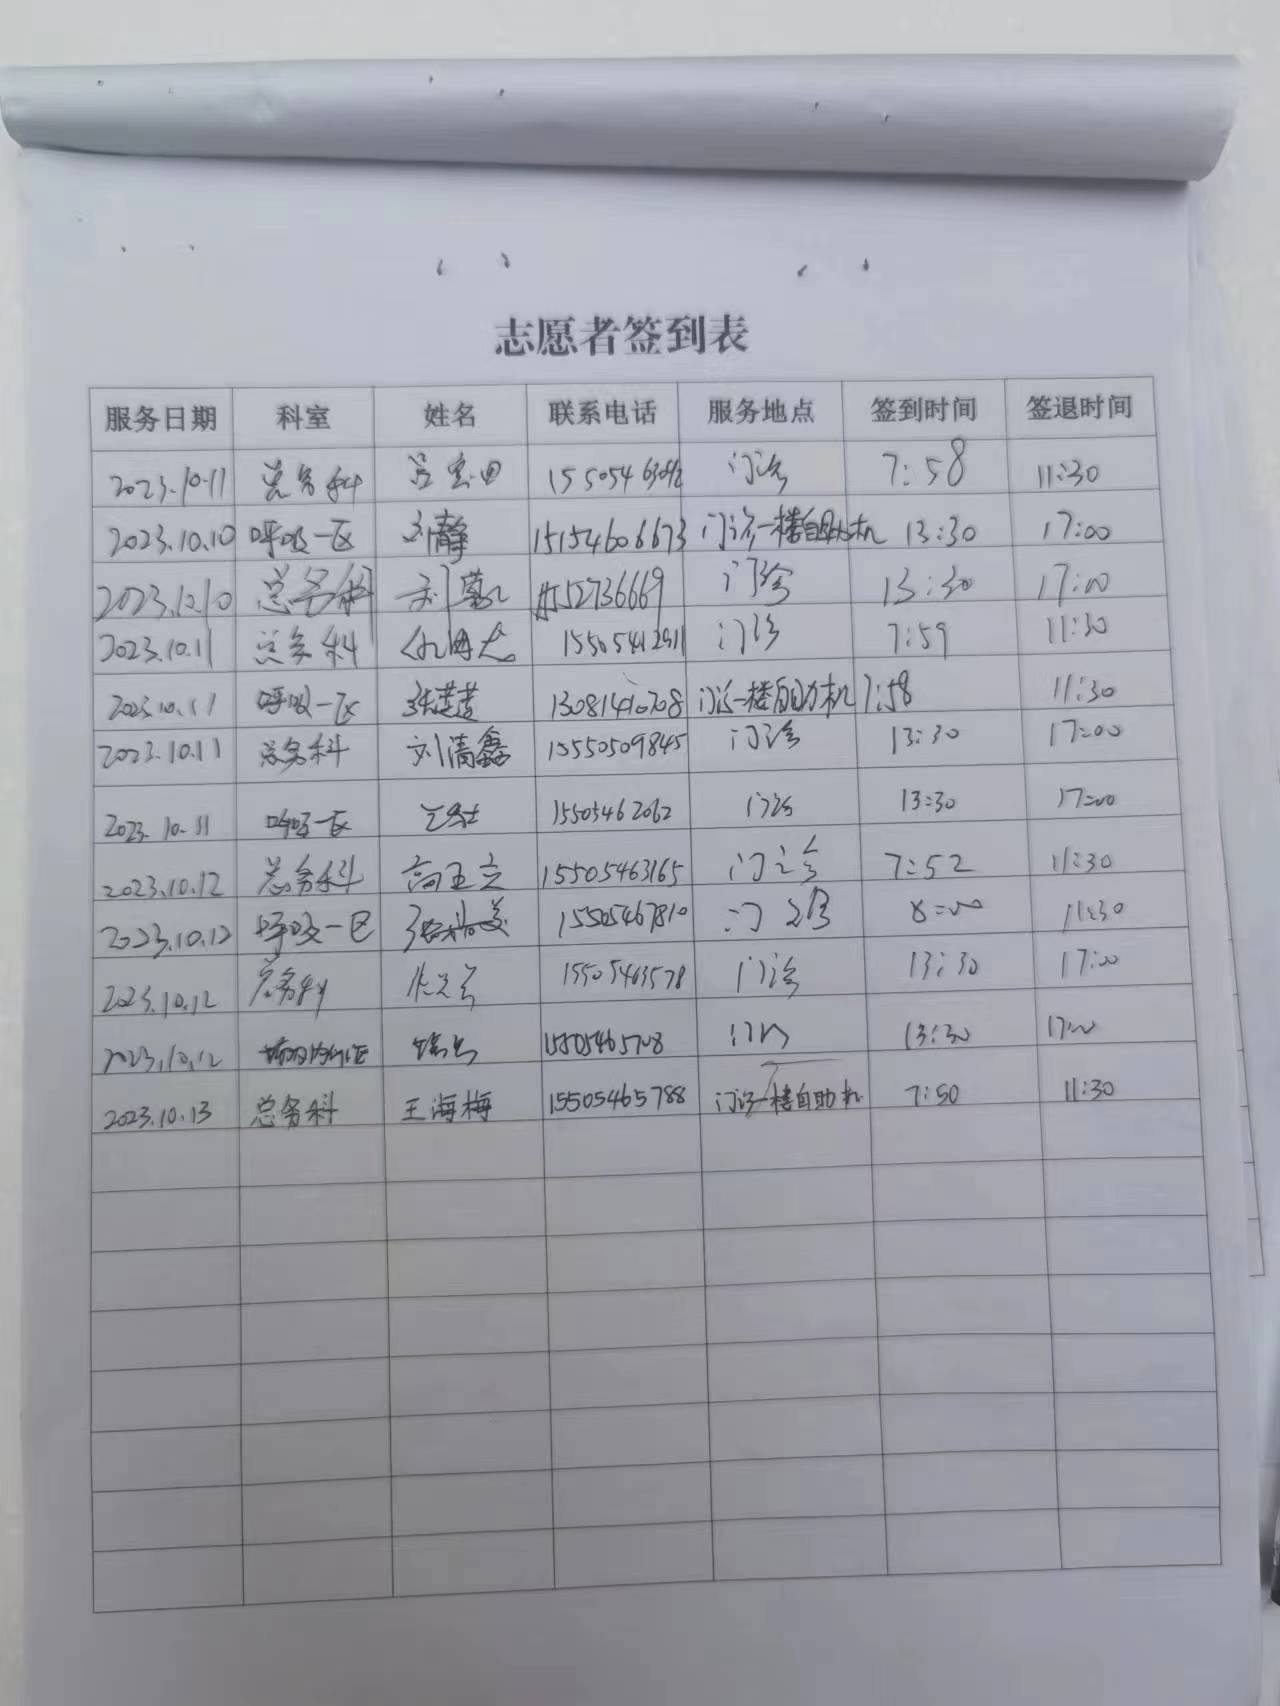 志愿者签到表
服务日期 科室 姓名 联系电话 服务地点 签到时间 签退时间
2023.10.11 总务科 门诊 7:58 11:30
2023.10.10 呼吸一区 刘静 15154606673 门诊一楼自助机 13:30 17:00
2023.10.10 总务科 门诊 13:30 17:00
2023.10.11 总务科 15505412911 门诊 7:59 11:30
2023.10.11 呼吸一区 门诊一楼自助机 7:58 11:30
2023.10.11 总务科 刘清鑫 15550509845 门诊 13:30 17:00
2023.10.11 呼吸一区 15505462062 门诊 13:30 17:00
2023.10.12 总务科 高玉立 15505463165 门诊 7:52 11:30
2023.10.12 呼吸一区 15505467810 门诊 8:00 11:30
2023.10.12 总务科 15505463578 门诊 13:30 17:00
2023.10.12 门诊 13:30 17:00
2023.10.13 总务科 王海梅 15505465788 门诊一楼自助机 7:50 11:30